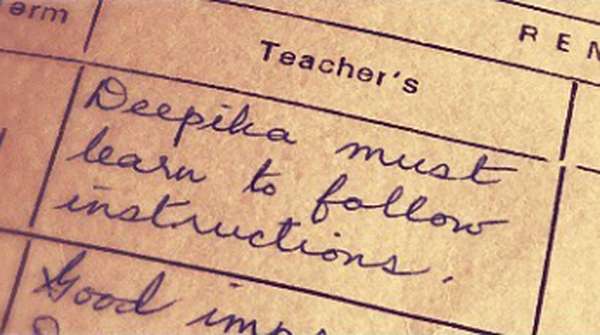 Teacher's
Deepika must
learn to follow
instructions.
Good